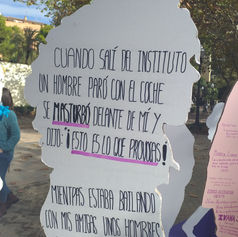 CUANDO SALÍ DEL INSTITUTO
UN HOMBRE PARÓ CON EL COCHE
SE MASTURBÓ DELANTE DE MÍ Y
DIJO: ¡ESTO ES LO QUE PROVOCAS!
MIENTRAS ESTABA BAILANDO
CON MIS AMIGAS UNOS HOMBRES